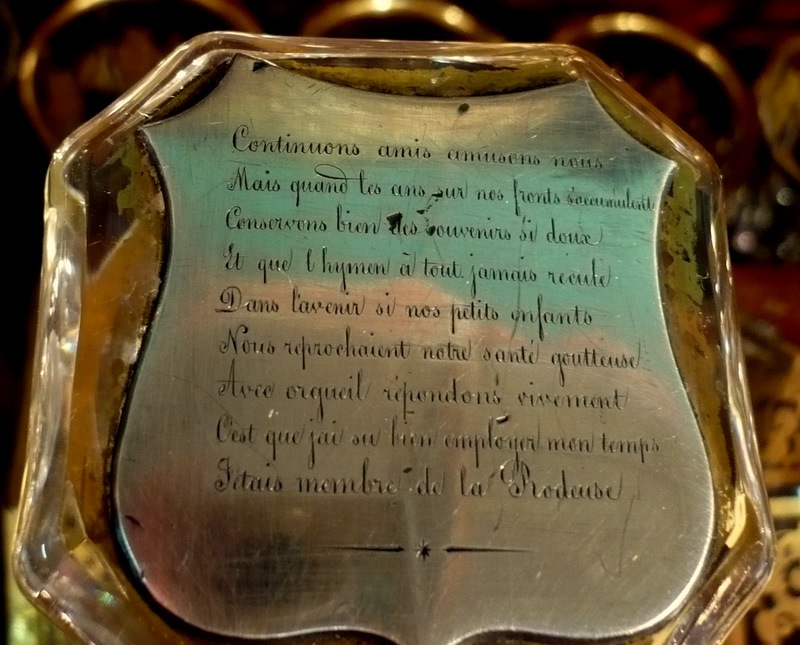 Continuons amis amusons nous
Mais quand les ans sur nos fronts s'accumulent
Conservons bien des souvenirs si doux
Et que l hymen à tout jamais recule
Dans l'avenir si nos petits enfants
Nous reprochaient notre santé goutteuse
Avec orgueil répondons vivement
C'est que jai su bien employer mon temps
J'étais membre de la Rodeuse